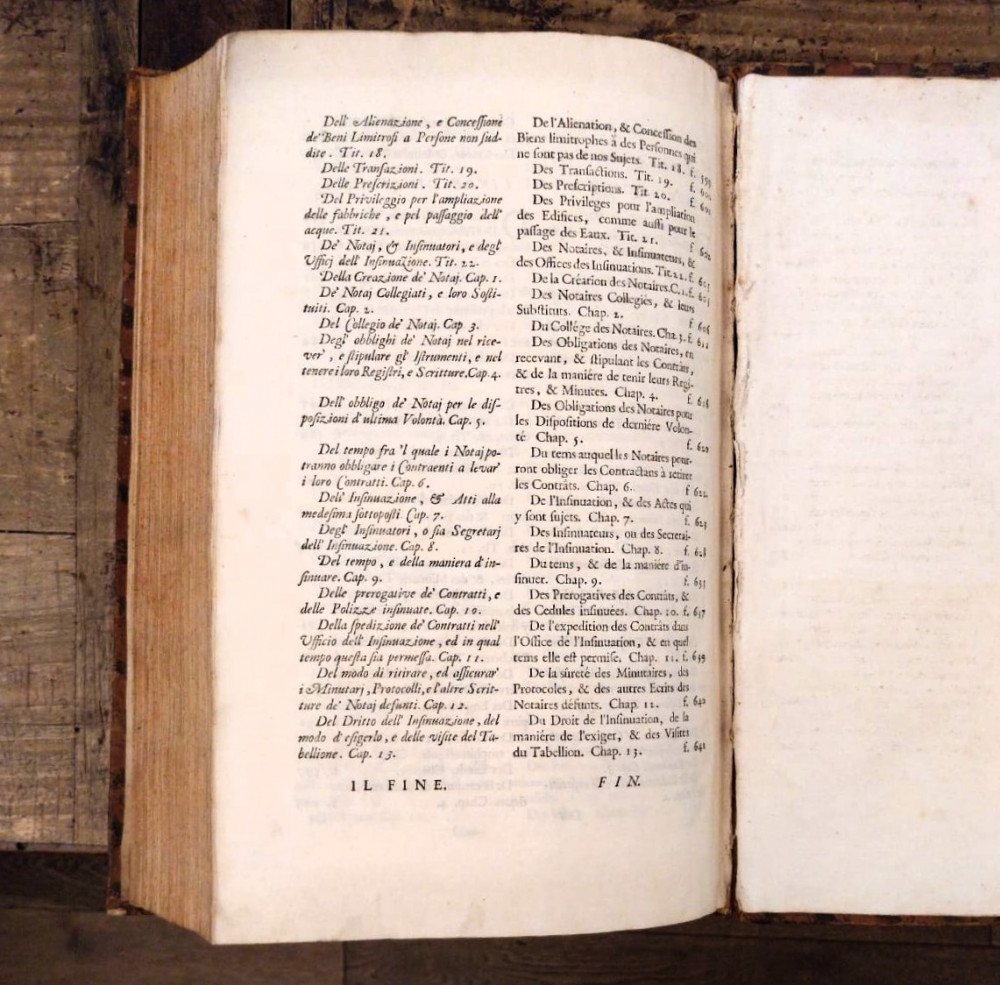 Dell' Alienazione, e Concessione
de' Beni Limitrofi a Persone non sud-
dite. Tit. 18.
Delle Transazioni. Tit. 19.
Delle Prescrizioni. Tit. 20.
Del Privileggio per l'ampliazione
delle fabbriche, e pel passaggio dell'
acque. Tit. 21.
De' Notaj, & Insinuatori, e degl'
Ufficj dell' Insinuazione. Tit. 22.
Della Creazione de' Notaj. Cap. 1.
De' Notaj Collegiati, e loro Sosti-
tuiti. Cap. 2.
Del Collegio de' Notaj. Cap 3.
Degl' obblighi de' Notaj nel rice-
ver', e stipulare gl' Istrumenti, e nel
tenere i loro Registri, e Scritture. Cap. 4.
Dell' obbligo de' Notaj per le dis-
posizioni d'ultima Volontà. Cap. 5.
Del tempo fra 'l quale i Notaj po-
tranno obbligare i Contraenti a levar'
i loro Contratti. Cap. 6.
Dell' Insinuazione, & Atti alla
medesima sottoposti Cap. 7.
Degl' Insinuatori, o sia Segretarj
dell' Insinuazione. Cap. 8.
Del tempo, e della maniera d'in-
sinuare. Cap. 9.
Delle prerogative de' Contratti, e
delle Polizze insinuate. Cap. 10.
Della spedizione de' Contratti nell'
Ufficio dell' Insinuazione, ed in qual
tempo questa sia permessa. Cap. 11.
Del modo di ritirare, ed assicurar'
i Minutarj, Protocolli, e l'altre Scrit-
ture de' Notaj defunti. Cap. 12.
Del Dritto dell' Insinuazione, del
modo d'esigerlo, e delle visite del Ta-
bellione. Cap. 13.
IL FINE.
De l'Alienation, & Concession des
Biens limitrophes à des Personnes qui
ne sont pas de nos Sujets. Tit. 18. f. 599
Des Transactions. Tit. 19. f.
Des Prescriptions. Tit. 20. f.
Des Privileges pour l'ampliation
des Edifices, comme aussi pour le
passage des Eaux. Tit. 21. f. 602
Des Notaires, & Insinuateurs, &
des Offices des Insinuations. Tit. 22. f.
De la Création des Notaires. C. 1. f.
Des Notaires Collegiés, & leurs
Substituts. Chap. 2. f. 606
Du Collége des Notaires. Cha. 3. f.
Des Obligations des Notaires, en
recevant, & stipulant les Contrâts,
& de la maniére de tenir leurs Regi-
tres, & Minutes. Chap. 4. f. 616
Des Obligations des Notaires pour
les Dispositions de derniére Volon-
té Chap. 5. f. 620
Du tems auquel les Notaires pour-
ront obliger les Contractans à retirer
les Contrâts. Chap. 6. f 622
De l'Insinuation, & des Actes qui
y sont sujets. Chap. 7. f. 623
Des Insinuateurs, ou des Secretai-
res de l'Insinuation. Chap. 8. f. 628
Du tems, & de la maniére d'in-
sinuer. Chap. 9. f. 633
Des Prerogatives des Contrâts, &
des Cedules insinuées. Chap. 10. f. 637
De l'expedition des Contrâts dans
l'Office de l'Insinuation, & en quel
tems elle est permise. Chap. 11. f. 639
De la sûreté des Minutaires, des
Protocoles, & des autres Ecrits des
Notaires défunts. Chap. 12. f. 640
Du Droit de l'Insinuation, de la
maniére de l'exiger, & des Visites
du Tabellion. Chap. 13. f. 641
FIN.